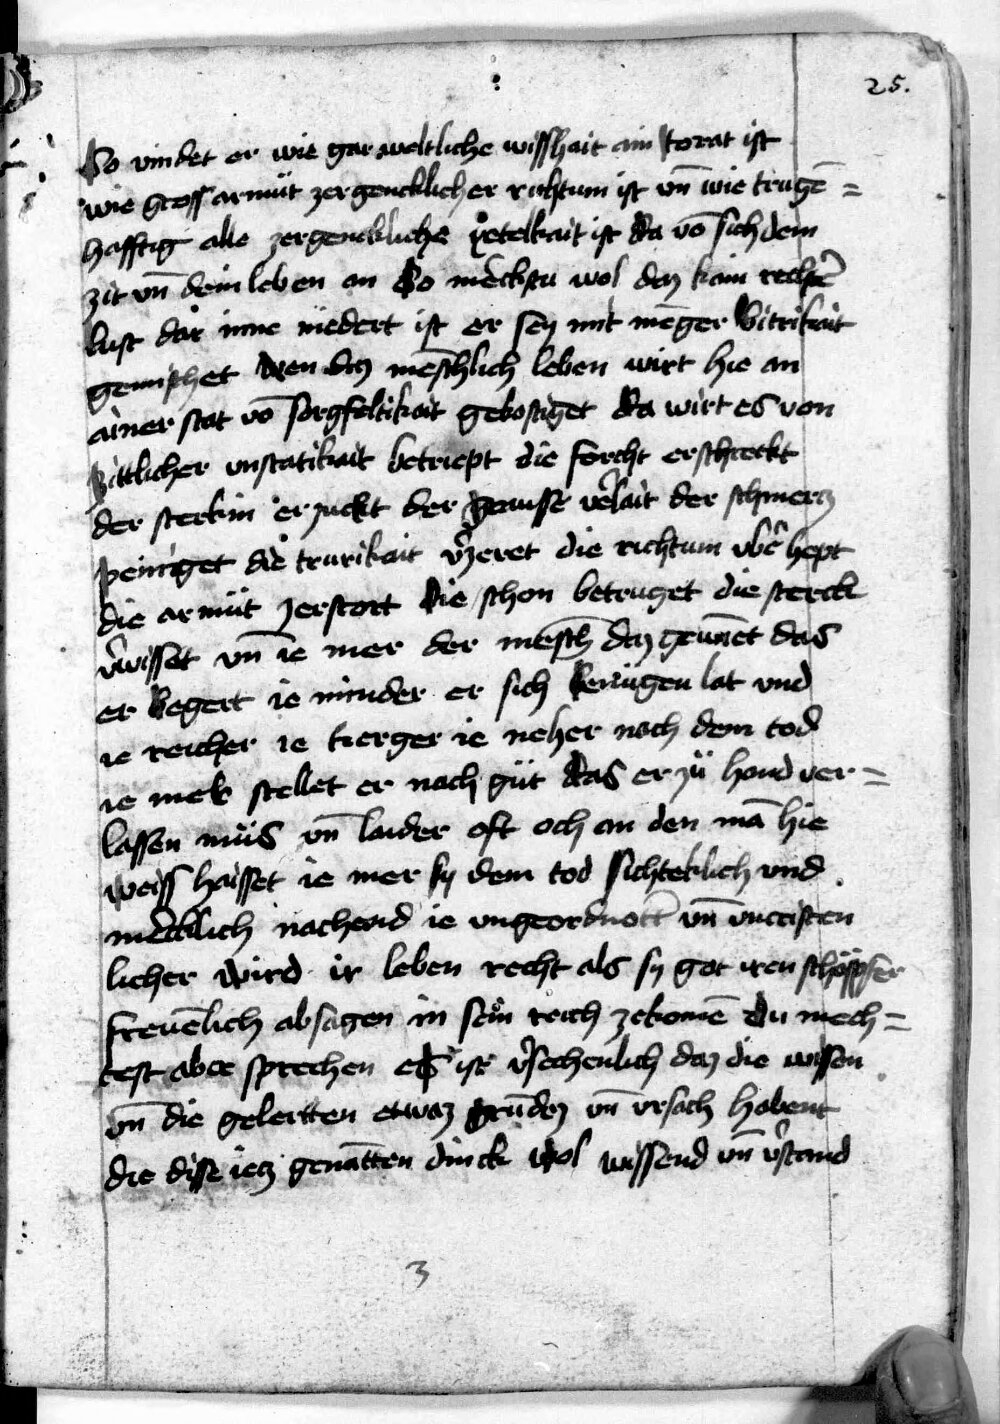 25.
So vindet er wie gar weltliche wisshait ain torat ist
wie gross armüt zergencklicher richtum ist vn̄ wie trugē=
hafftig alle zergenckliche ÿetelkait ist da vō sich dem
zit vn̄ dem leben an So merckstu wol daz kain rechter
lust dar inne niedert ist er sey mit mēger bitrikait
gemischet Wen daz mēschlich leben wirt hie an
ainer stat vō sorgfeltikait gekostiget da wirt es von
zittlicher vnstatikait betriept die forcht erschreckt
der sterkin erzuckt der der schmercz
peiniget die trurikait v̄zeret die richtum vber hept
die armüt zerstort die schon betruget die sterck
v̄wisset vn̄ ie mer der mēsch daz gewīnet das
er begert ie minder er sich benügen lat vnd
ie reicher ie kierger ie neher nach dem tod
ie mer stellet er nach güt das er zü hand ver=
lassen müs vn̄ laider oft och an den mā hie
weiss haisset ie mer sy dem tod sichteklich vnd
mercklich nachend ie vngeordnott vn̄ vncristen
licher wird ir leben recht als sy got iren schöpffer
frevēlich absagen in sein reich zekomē Du mech=
test aber sprechen es ist v̄sechenlich daz die wisen
vn̄ die gelertten etwaz grūdez vn̄ vrsach habent
die disse iecz genātten dinck wol wissend vn̄ v̄stand
3